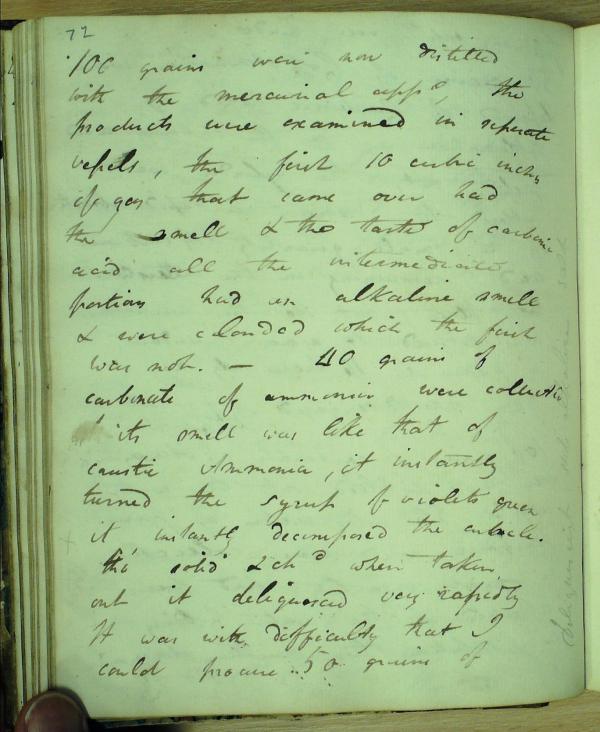 72
100 grains were now distilled
with the mercurial appd, the
products were examined in seperate
vessels, the first 10 cubic inches
of gas that came over had
the smell & the taste of carbonic
acid all the intermediate
portions had an alkaline smell
& were clouded which the first
was not. — 40 grains of
carbonate of ammonia were collected
its smell was like that of
caustic Ammonia, it instantly
turned the syrup of violets green
it instantly decomposed the cuticle.
tho' solid when taken
out it deliquesced very rapidly
It was with difficulty that I
could procure 50 grains of